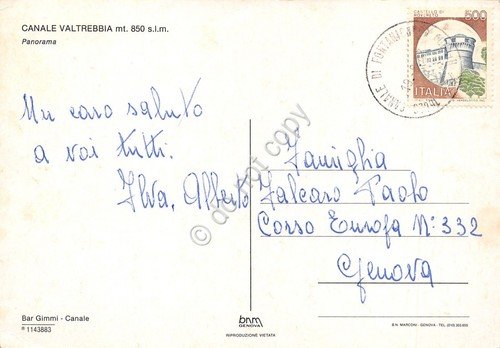 CANALE VALTREBBIA mt. 850 s.l.m.
Panorama
Un caro saluto
a voi tutti.
Ilva, Alberto
500
CASTELLO DI
ROVERETO
ITALIA
CANALE DI FONTANIGORDA
Famiglia
Falcaro Paolo
Corso Europa N° 332
Genova
do not copy
Bar Gimmi - Canale
® 1143883
bnm
GENOVA
RIPRODUZIONE VIETATA
B.N. MARCONI - GENOVA - TEL. (010)